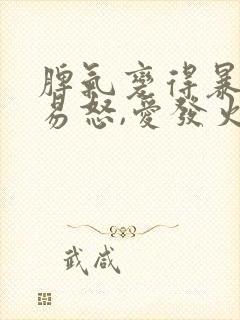 脾氣變得暴
易怒,愛發火
武咸